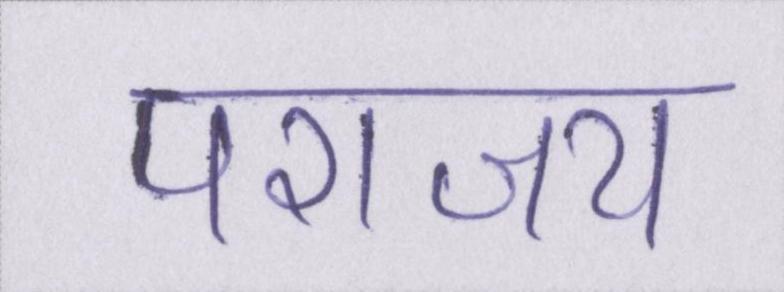 पराजय